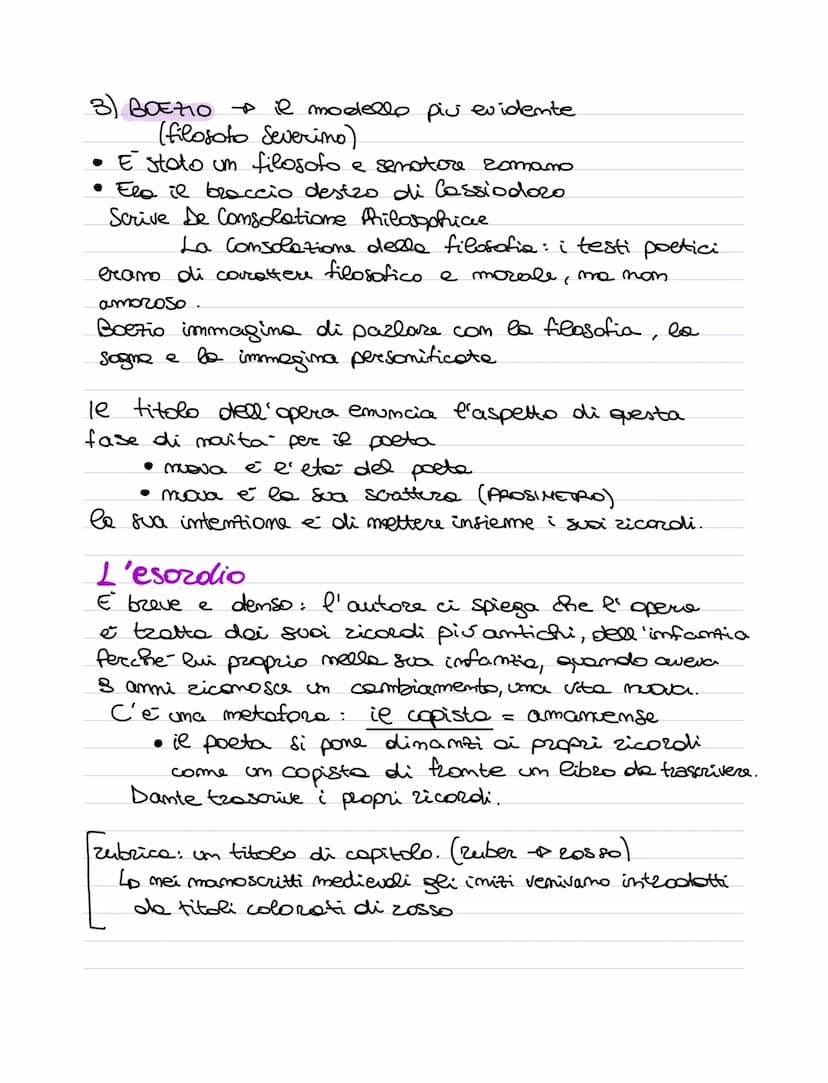 3) BOEZIO → il modello più evidente
(filosofo Severino)
• È stato un filosofo e senatore romano
• Era il braccio destro di Cassiodoro
Scrive De Consolatione Philosophiae
La Consolazione della filosofia: i testi poetici
erano di carattere filosofico e morale, ma non
amoroso.
Boezio immagina di parlare con la filosofia, la
sogna e la immagina personificata
Il titolo dell'opera enuncia l'aspetto di questa
fase di novità per il poeta
• nuova è l'età del poeta
• nuova è la sua scrittura (PROSIMETRO)
la sua intenzione è di mettere insieme i suoi ricordi.
L'esordio
È breve e denso: l'autore ci spiega che l'opera
è tratta dai suoi ricordi più antichi, dell'infanzia
Perché lui proprio nella sua infanzia, quando aveva
9 anni riconosce un cambiamento, una vita nuova.
C'è una metafora: il copista = amanuense
• il poeta si pone dinanzi ai propri ricordi
come un copista di fronte un libro da trascrivere.
Dante trascrive i propri ricordi.
rubrica: un titolo di capitolo. (ruber → rosso)
↳ nei manoscritti medievali gli inizi venivano introdotti
da titoli colorati di rosso